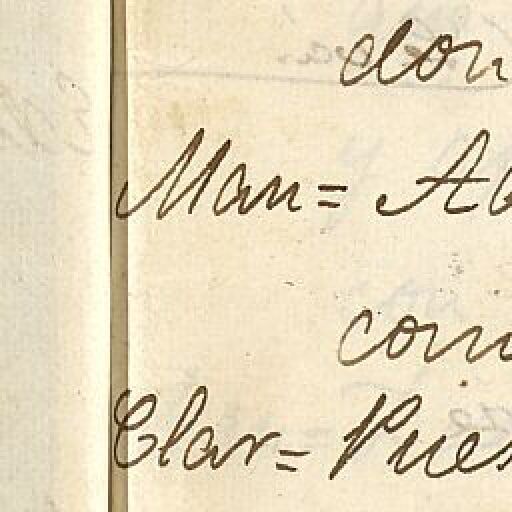 don
Man= Ab
com
Clar= Pues